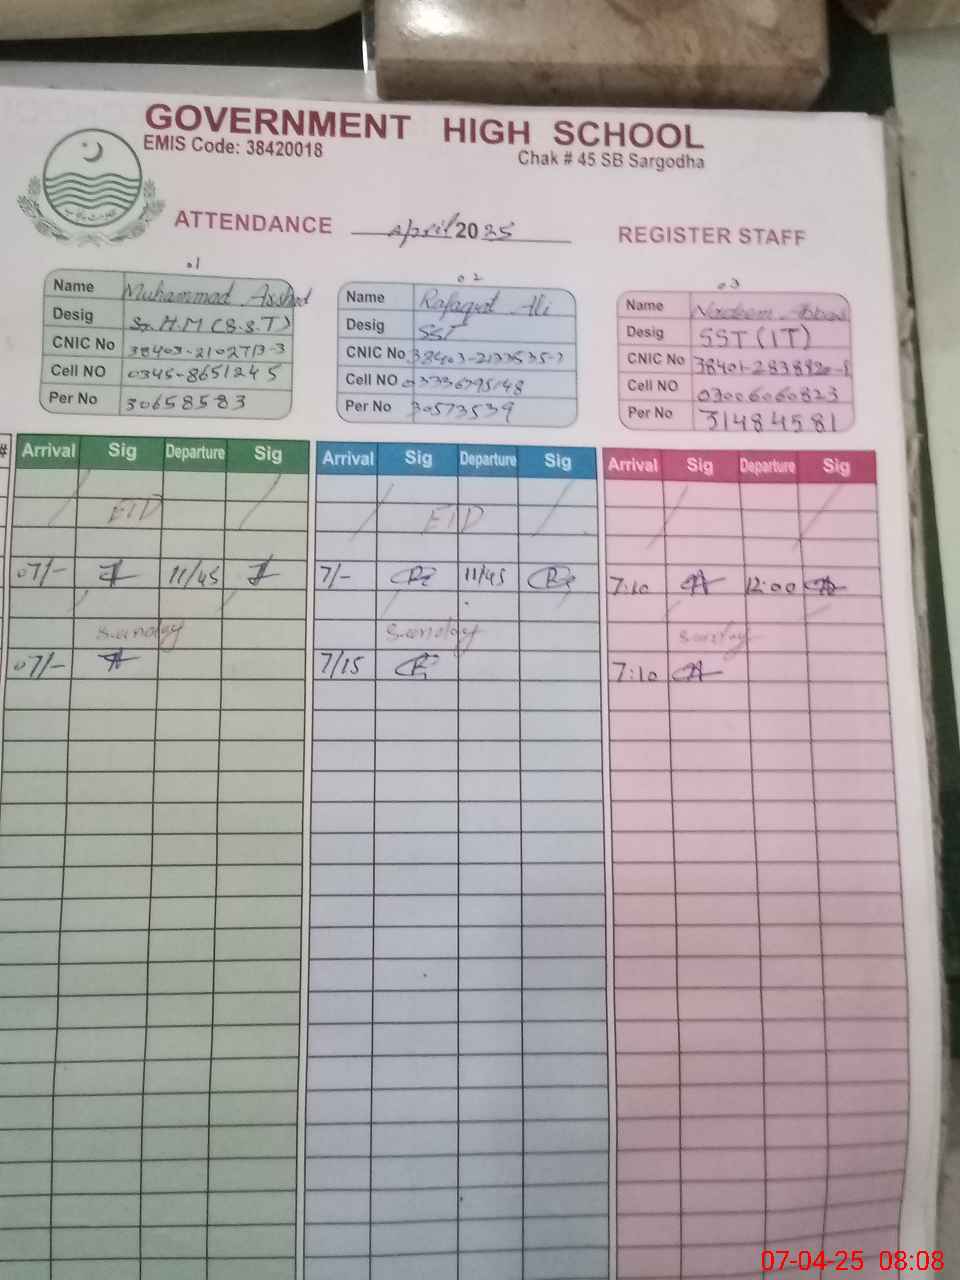 GOVERNMENT HIGH SCHOOL
EMIS Code: 38420018
Chak # 45 SB Sargodha
ATTENDANCE April 2025 REGISTER STAFF
01
Name Muhammad Arshad
Desig Sr. H.M (S.S.T)
CNIC No
Cell NO 0345-8651245
Per No 30658583
02
Name Rafaqat Ali
Desig SST
CNIC No
Cell NO
Per No 30573539
03
Name Nadeem Abbas
Desig SST (IT)
CNIC No
Cell NO 03006060823
Per No 31484581
# Arrival Sig Departure Sig Arrival Sig Departure Sig Arrival Sig Departure Sig
EID EID
07/- 11/45 7/- 11/45 7:10 12:00
07/- 7/15 7:10
07-04-25 08:08